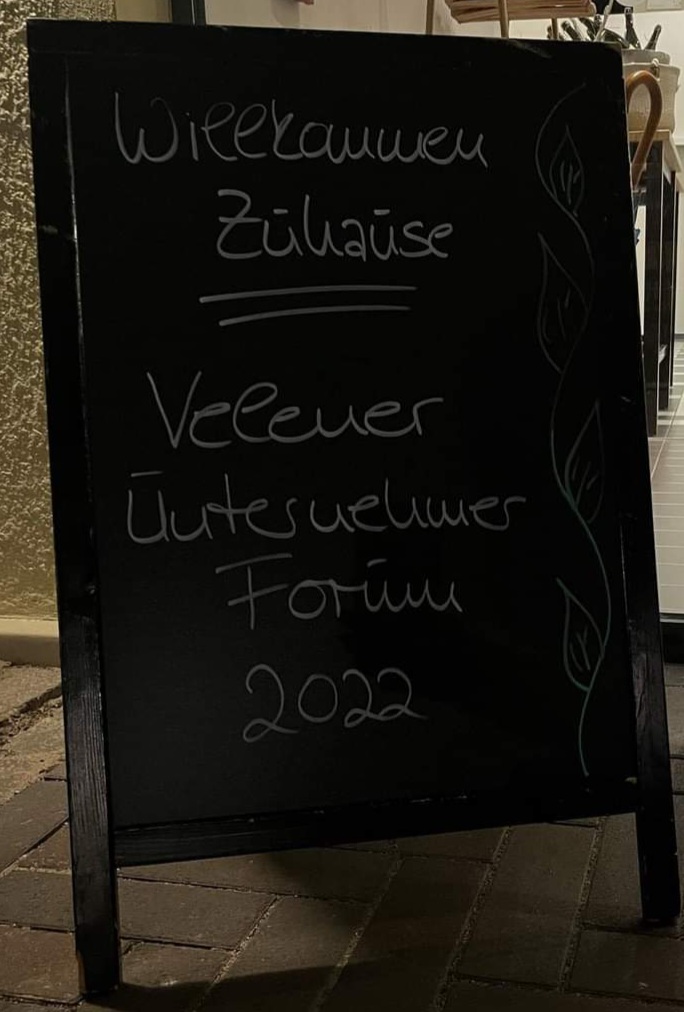 Willkommen
Zuhause
Velener
Unternehmer
Forum
2022